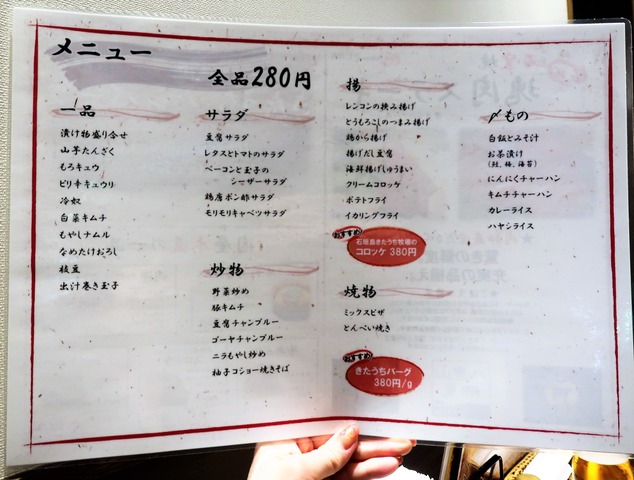 メニュー
全品280円
一品
漬け物盛り合せ
山芋たんざく
もろキュウ
ピリ辛キュウリ
冷奴
白菜キムチ
もやしナムル
なめたけおろし
枝豆
出汁巻き玉子
サラダ
豆腐サラダ
レタスとトマトのサラダ
ベーコンと玉子の
シーザーサラダ
鶏唐ポン酢サラダ
モリモリキャベツサラダ
炒物
野菜炒め
豚キムチ
豆腐チャンプルー
ゴーヤチャンプルー
ニラもやし炒め
柚子コショー焼きそば
揚
レンコンの挟み揚げ
とうもろこしのつまみ揚げ
鶏から揚げ
揚げだし豆腐
海鮮揚げしゅうまい
クリームコロッケ
ポテトフライ
イカリングフライ
おすすめ
石垣島きたうち牧場の
コロッケ 380円
焼物
ミックスピザ
とんぺい焼き
おすすめ
きたうちバーグ
380円/g
〆もの
白飯とみそ汁
お茶漬け
(鮭、梅、海苔)
にんにくチャーハン
キムチチャーハン
カレーライス
ハヤシライス